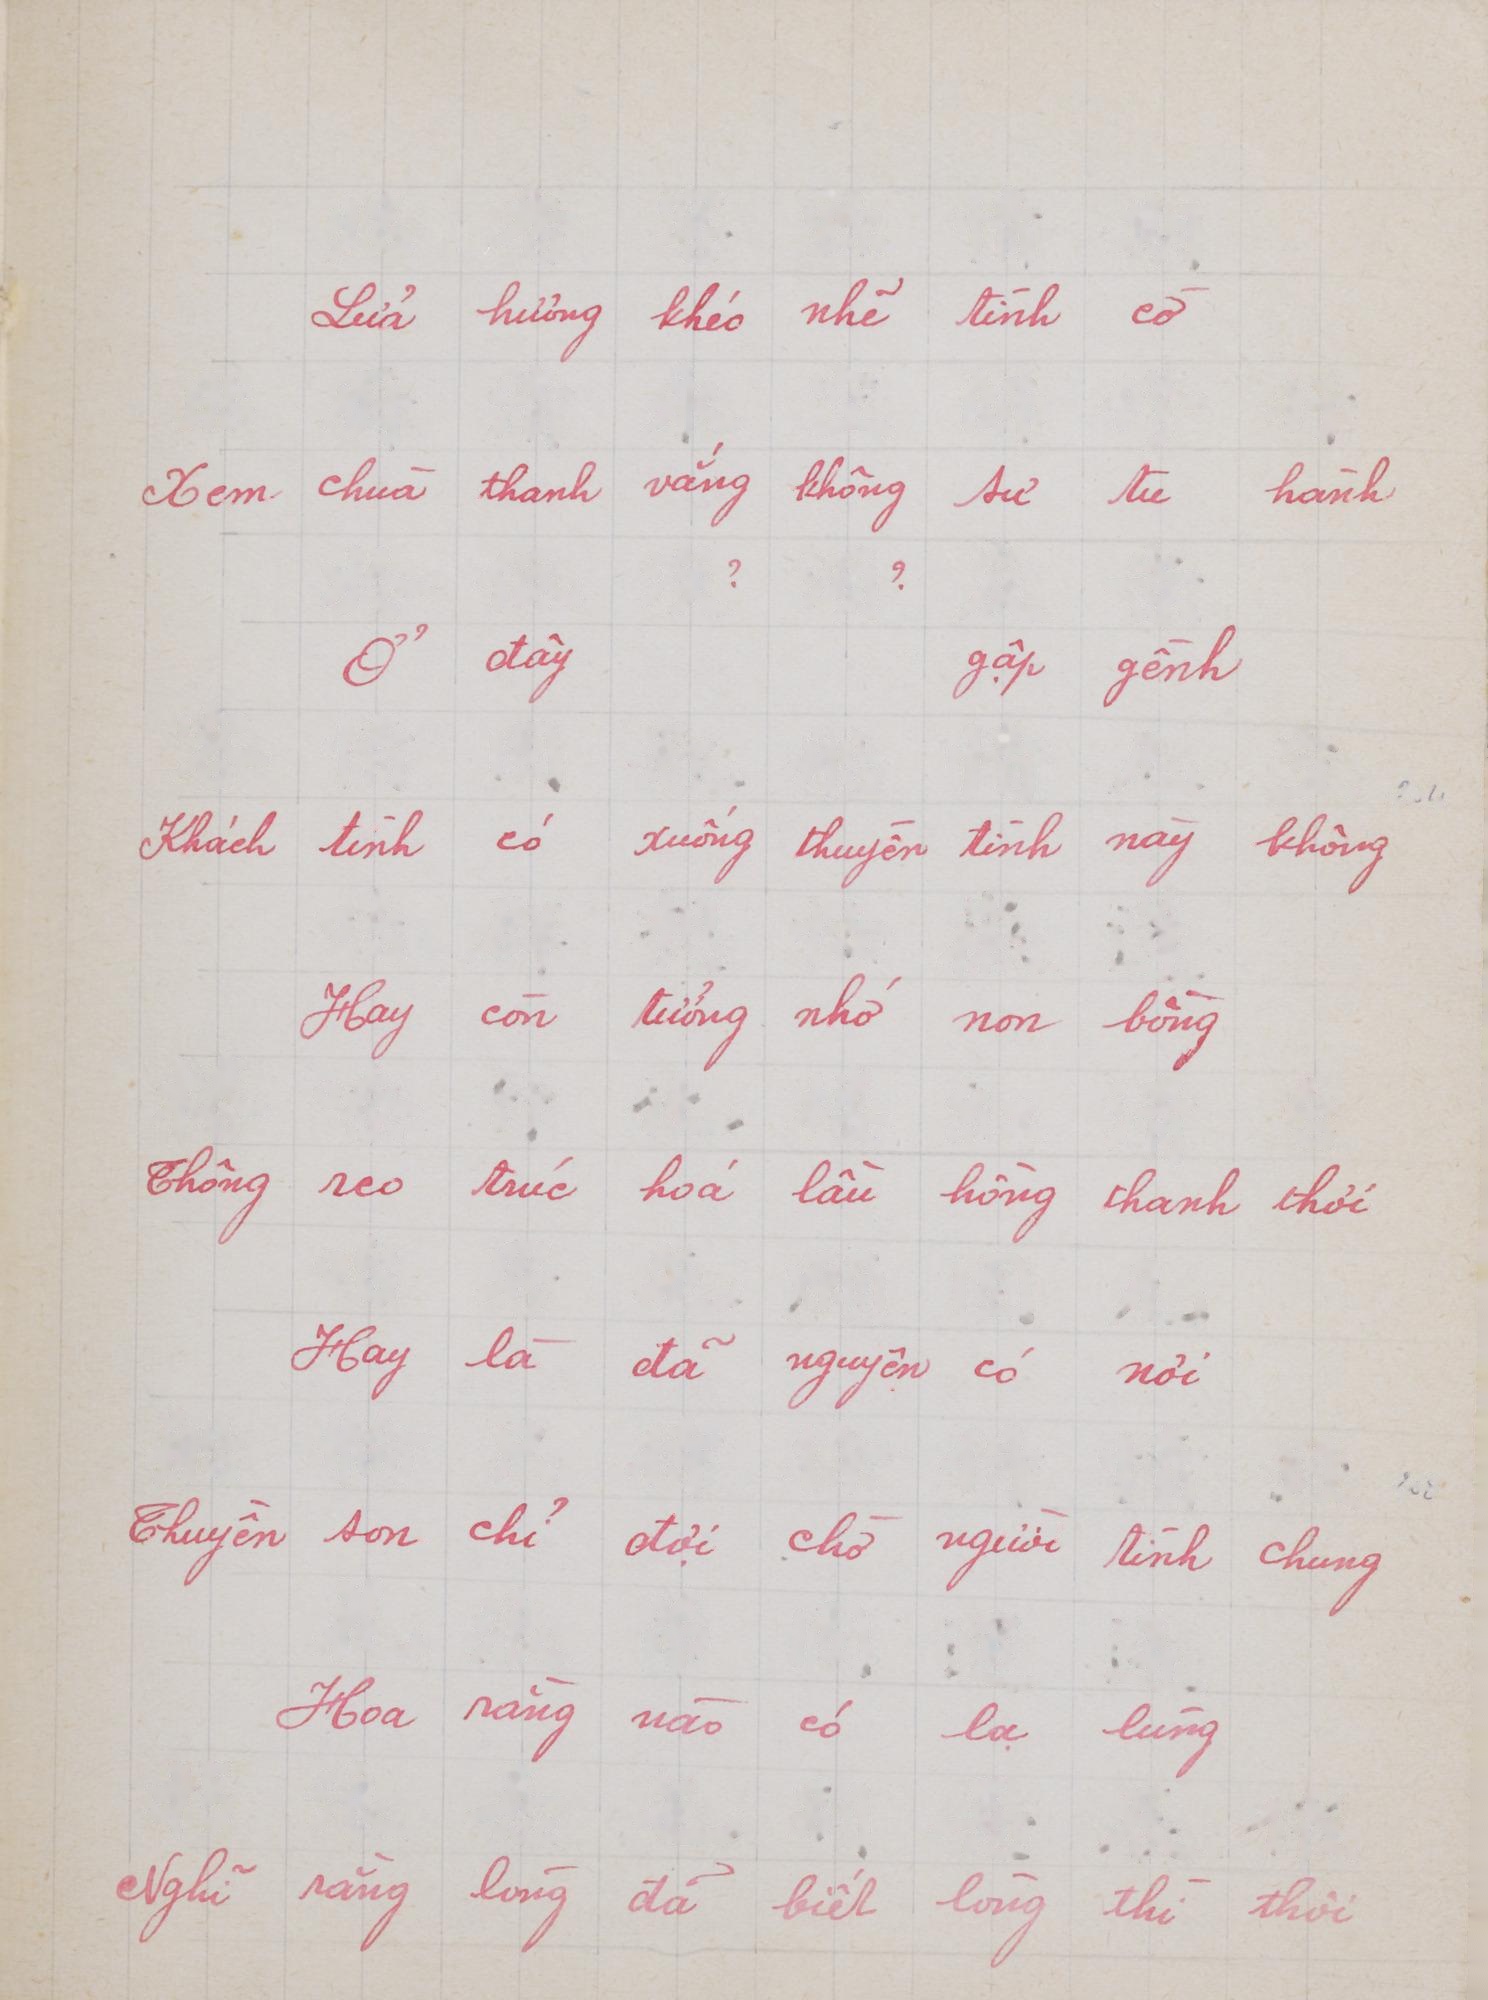 Lửa hương khéo nhẽ tình cờ
Xem chùa thanh vắng không sư tu hành
? ?
Ở đây gập gềnh
Khách tình có xuống thuyền tình này không
Hay còn tưởng nhớ non bồng
Thông reo trúc hoá lầu hồng thanh thơi
Hay là đã nguyện có nơi
Thuyền son chỉ đợi chờ người tình chung
Hoa rằng nào có lạ lùng
Nghĩ rằng lòng đã biết lòng thì thôi